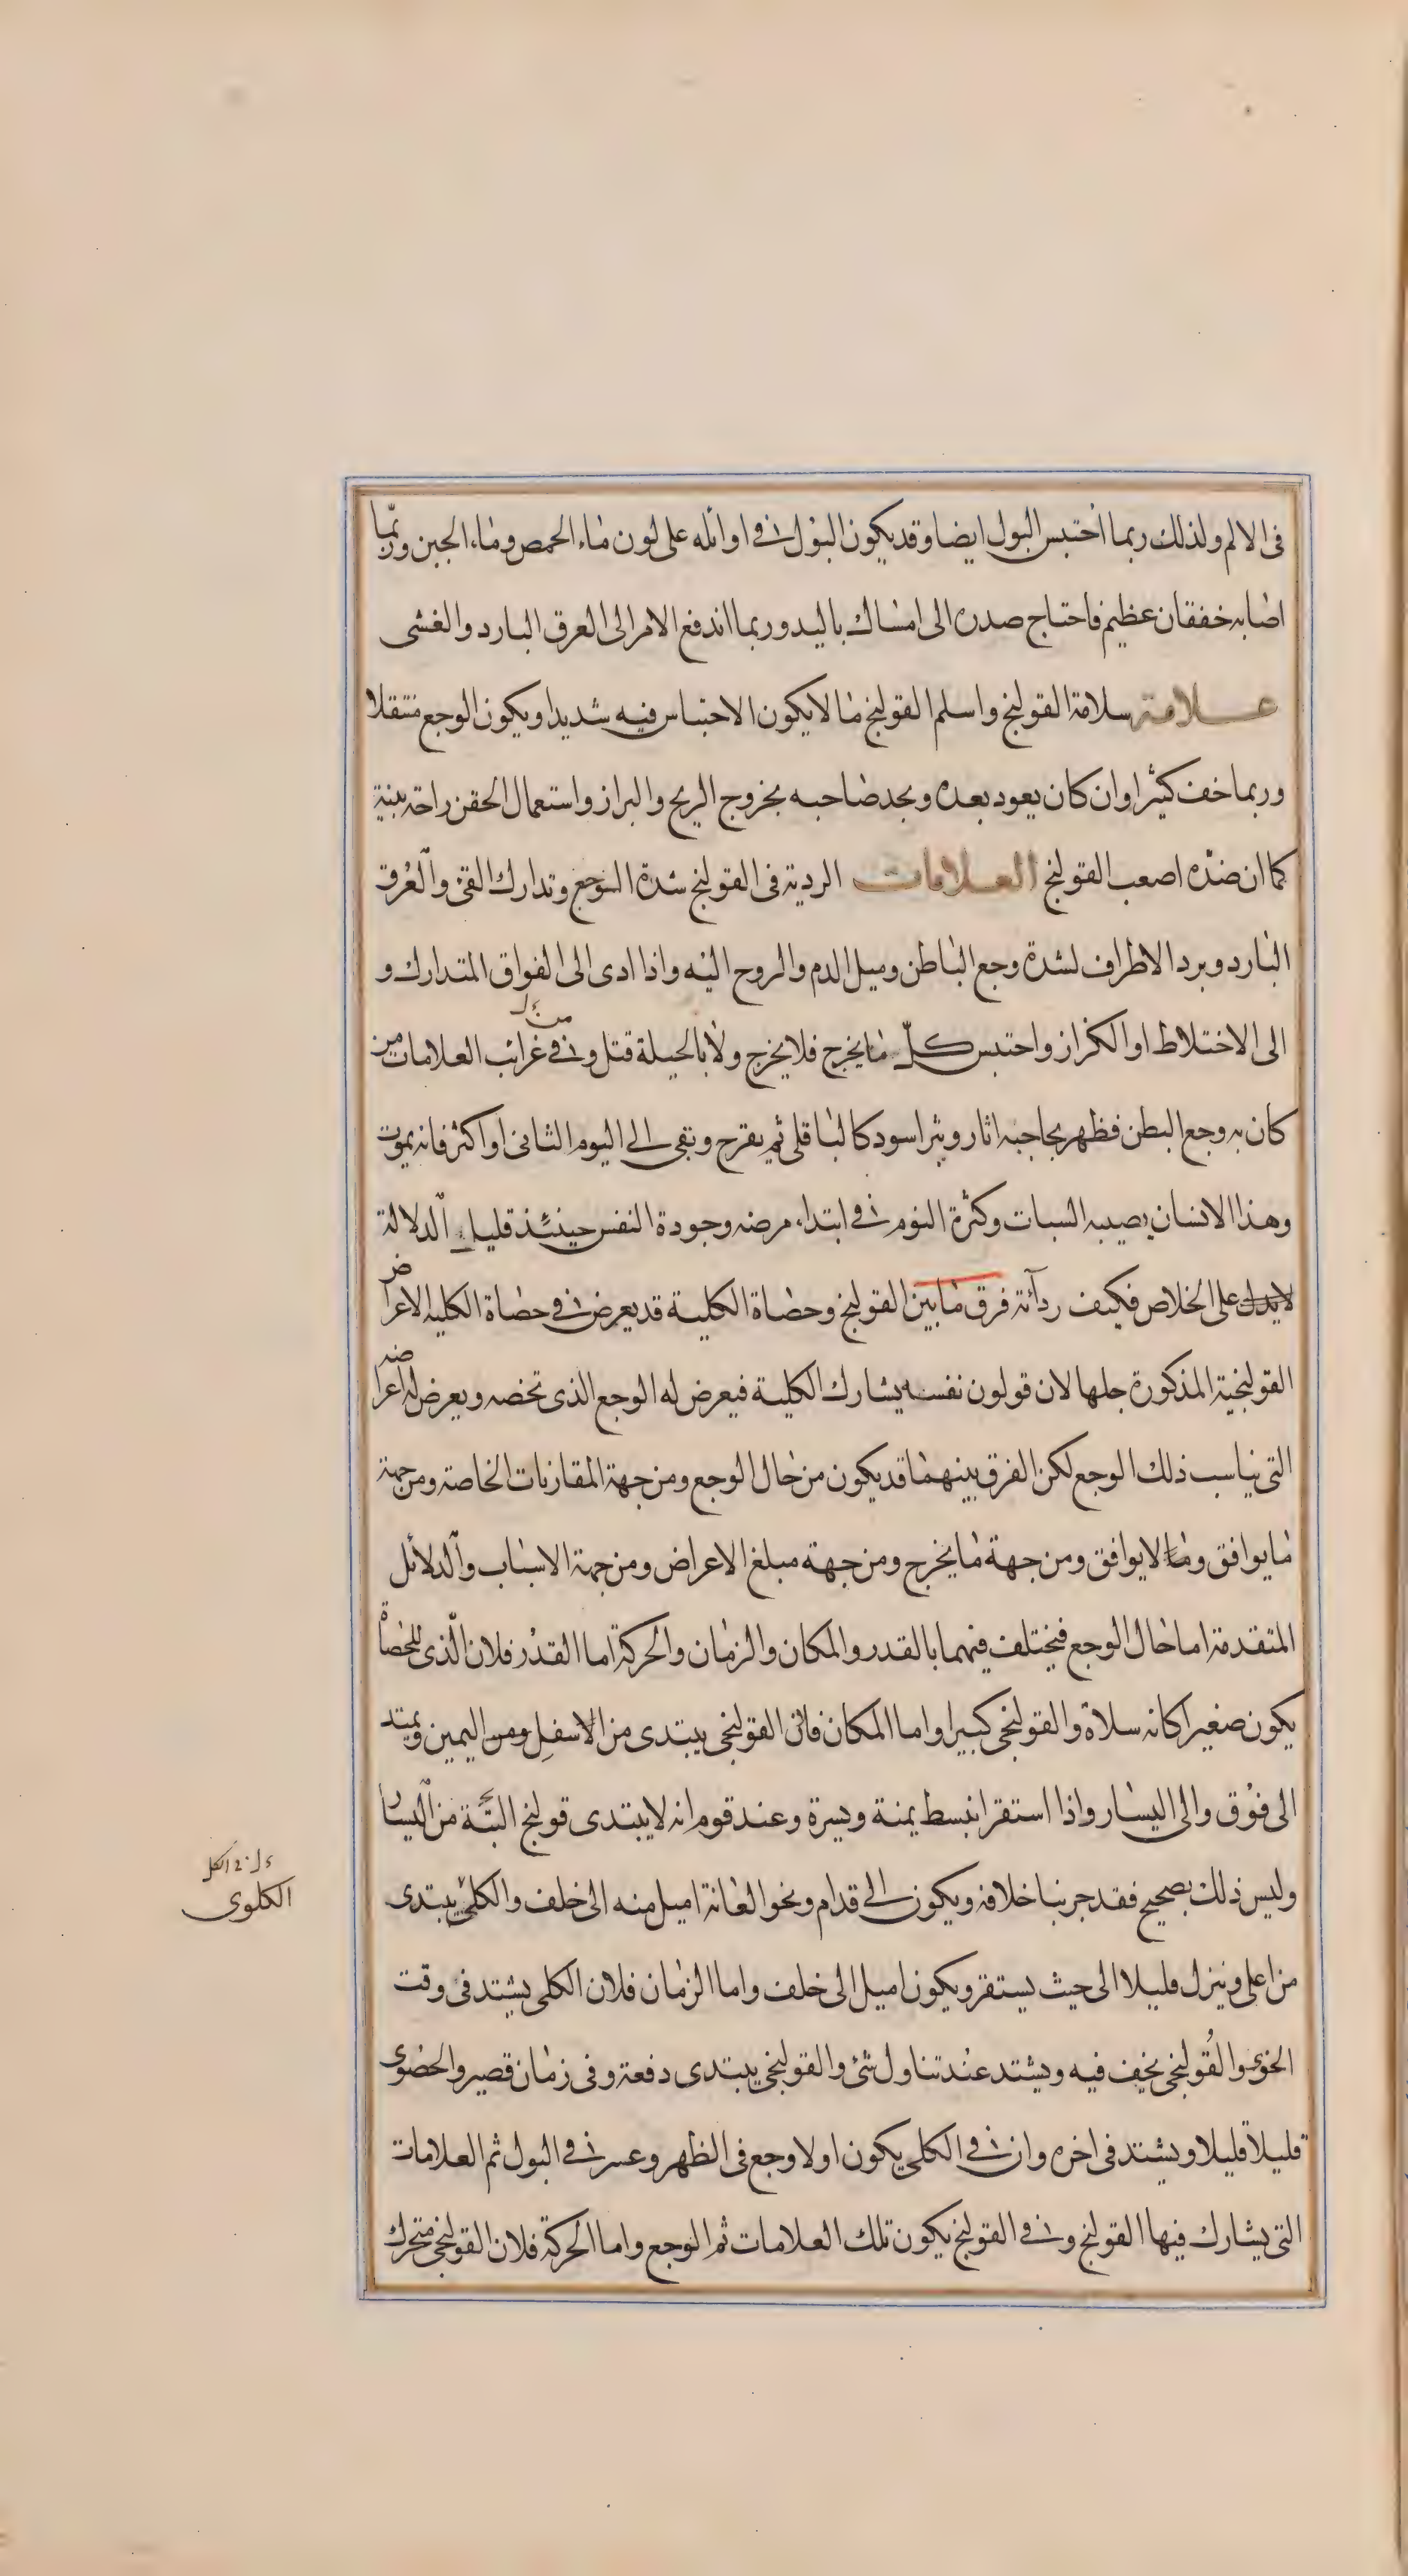 فى الالم ولذلك ربما احتبس البول ايضا وقد يكون البول فى اوائله على لون ماء الحمص وماء الجبن وربما
اصابه خفقان عظيم فاحتاج صدره الى امساك باليد وربما اندفع الامر الى العرق البارد والغشى
علامة سلامة القولنج واسلم القولنج ما لا يكون الاحتباس فيه شديدا ويكون الوجع متنقلا
وربما خف كثيرا وان كان يعود بعده ويجد صاحبه بخروج الريح والبراز واستعمال الحقن راحة بينة
كما ان ضده اصعب القولنج العلامات الردية فى القولنج شدة الوجع وتدارك القئ والعرق
البارد وبرد الاطراف لشدة وجع الباطن وميل الدم والروح اليه واذا ادى الى الفواق المتدارك و
الى الاختلاط او الكزاز واحتبس كل ما يخرج فلا يخرج ولا بالحيلة قتل وفى غرائب العلامات من
كان به وجع البطن فظهر بحاجبه اثار وبثر اسود كالباقلى ثم يقرح وبقى الى اليوم الثانى او اكثر فانه يموت
وهذا الانسان يصيبه السبات وكثرة النوم فى ابتداء مرضه وجودة النفس حينئذ قليل الدلالة
لا يدل على الخلاص فكيف ردائة فرق ما بين القولنج وحصاة الكلية قد يعرض فى حصاة الكلية الاعراض
القولنجية المذكورة جلها لان قولون نفسه يشارك الكلية فيعرض له الوجع الذى تخصه ويعرض له اعراضه
التى يناسب ذلك الوجع لكن الفرق بينهما قد يكون من حال الوجع ومن جهة المقارنات الخاصة ومن جهة
ما يوافق وما لا يوافق ومن جهة ما يخرج ومن جهة مبلغ الاعراض ومن جهة الاسباب والدلائل
المتقدمة اما حال الوجع فيختلف فيهما بالقدر والمكان والزمان والحركة اما القدر فلان الذى للحصاة
يكون صغيرا كانه سلاة والقولنجى كبيرا واما المكان فان القولنجى يبتدى من الاسفل ومن اليمين ويمتد
الى فوق والى اليسار واذا استقر انبسط يمنة ويسرة وعند قوم انه لا يبتدى قولنج البتة من اليسار
وليس ذلك بصحيح فقد جربنا خلافه ويكون الى قدام ونحو العانة اميل منه الى خلف والكلى يبتدى
الكلوى
من اعلى وينزل قليلا الى حيث يستقر ويكون اميل الى خلف واما الزمان فلان الكلى يشتد فى وقت
الخوى والقولنجى يخف فيه ويشتد عند تناول شئ والقولنجى يبتدى دفعة وفى زمان قصير والحصوى
قليلا قليلا ويشتد فى اخره وان فى الكلى يكون اولا وجع فى الظهر وعسر فى البول ثم العلامات
التى يشارك فيها القولنج وفى القولنج يكون تلك العلامات ثم الوجع واما الحركة فلان القولنجى متحرك